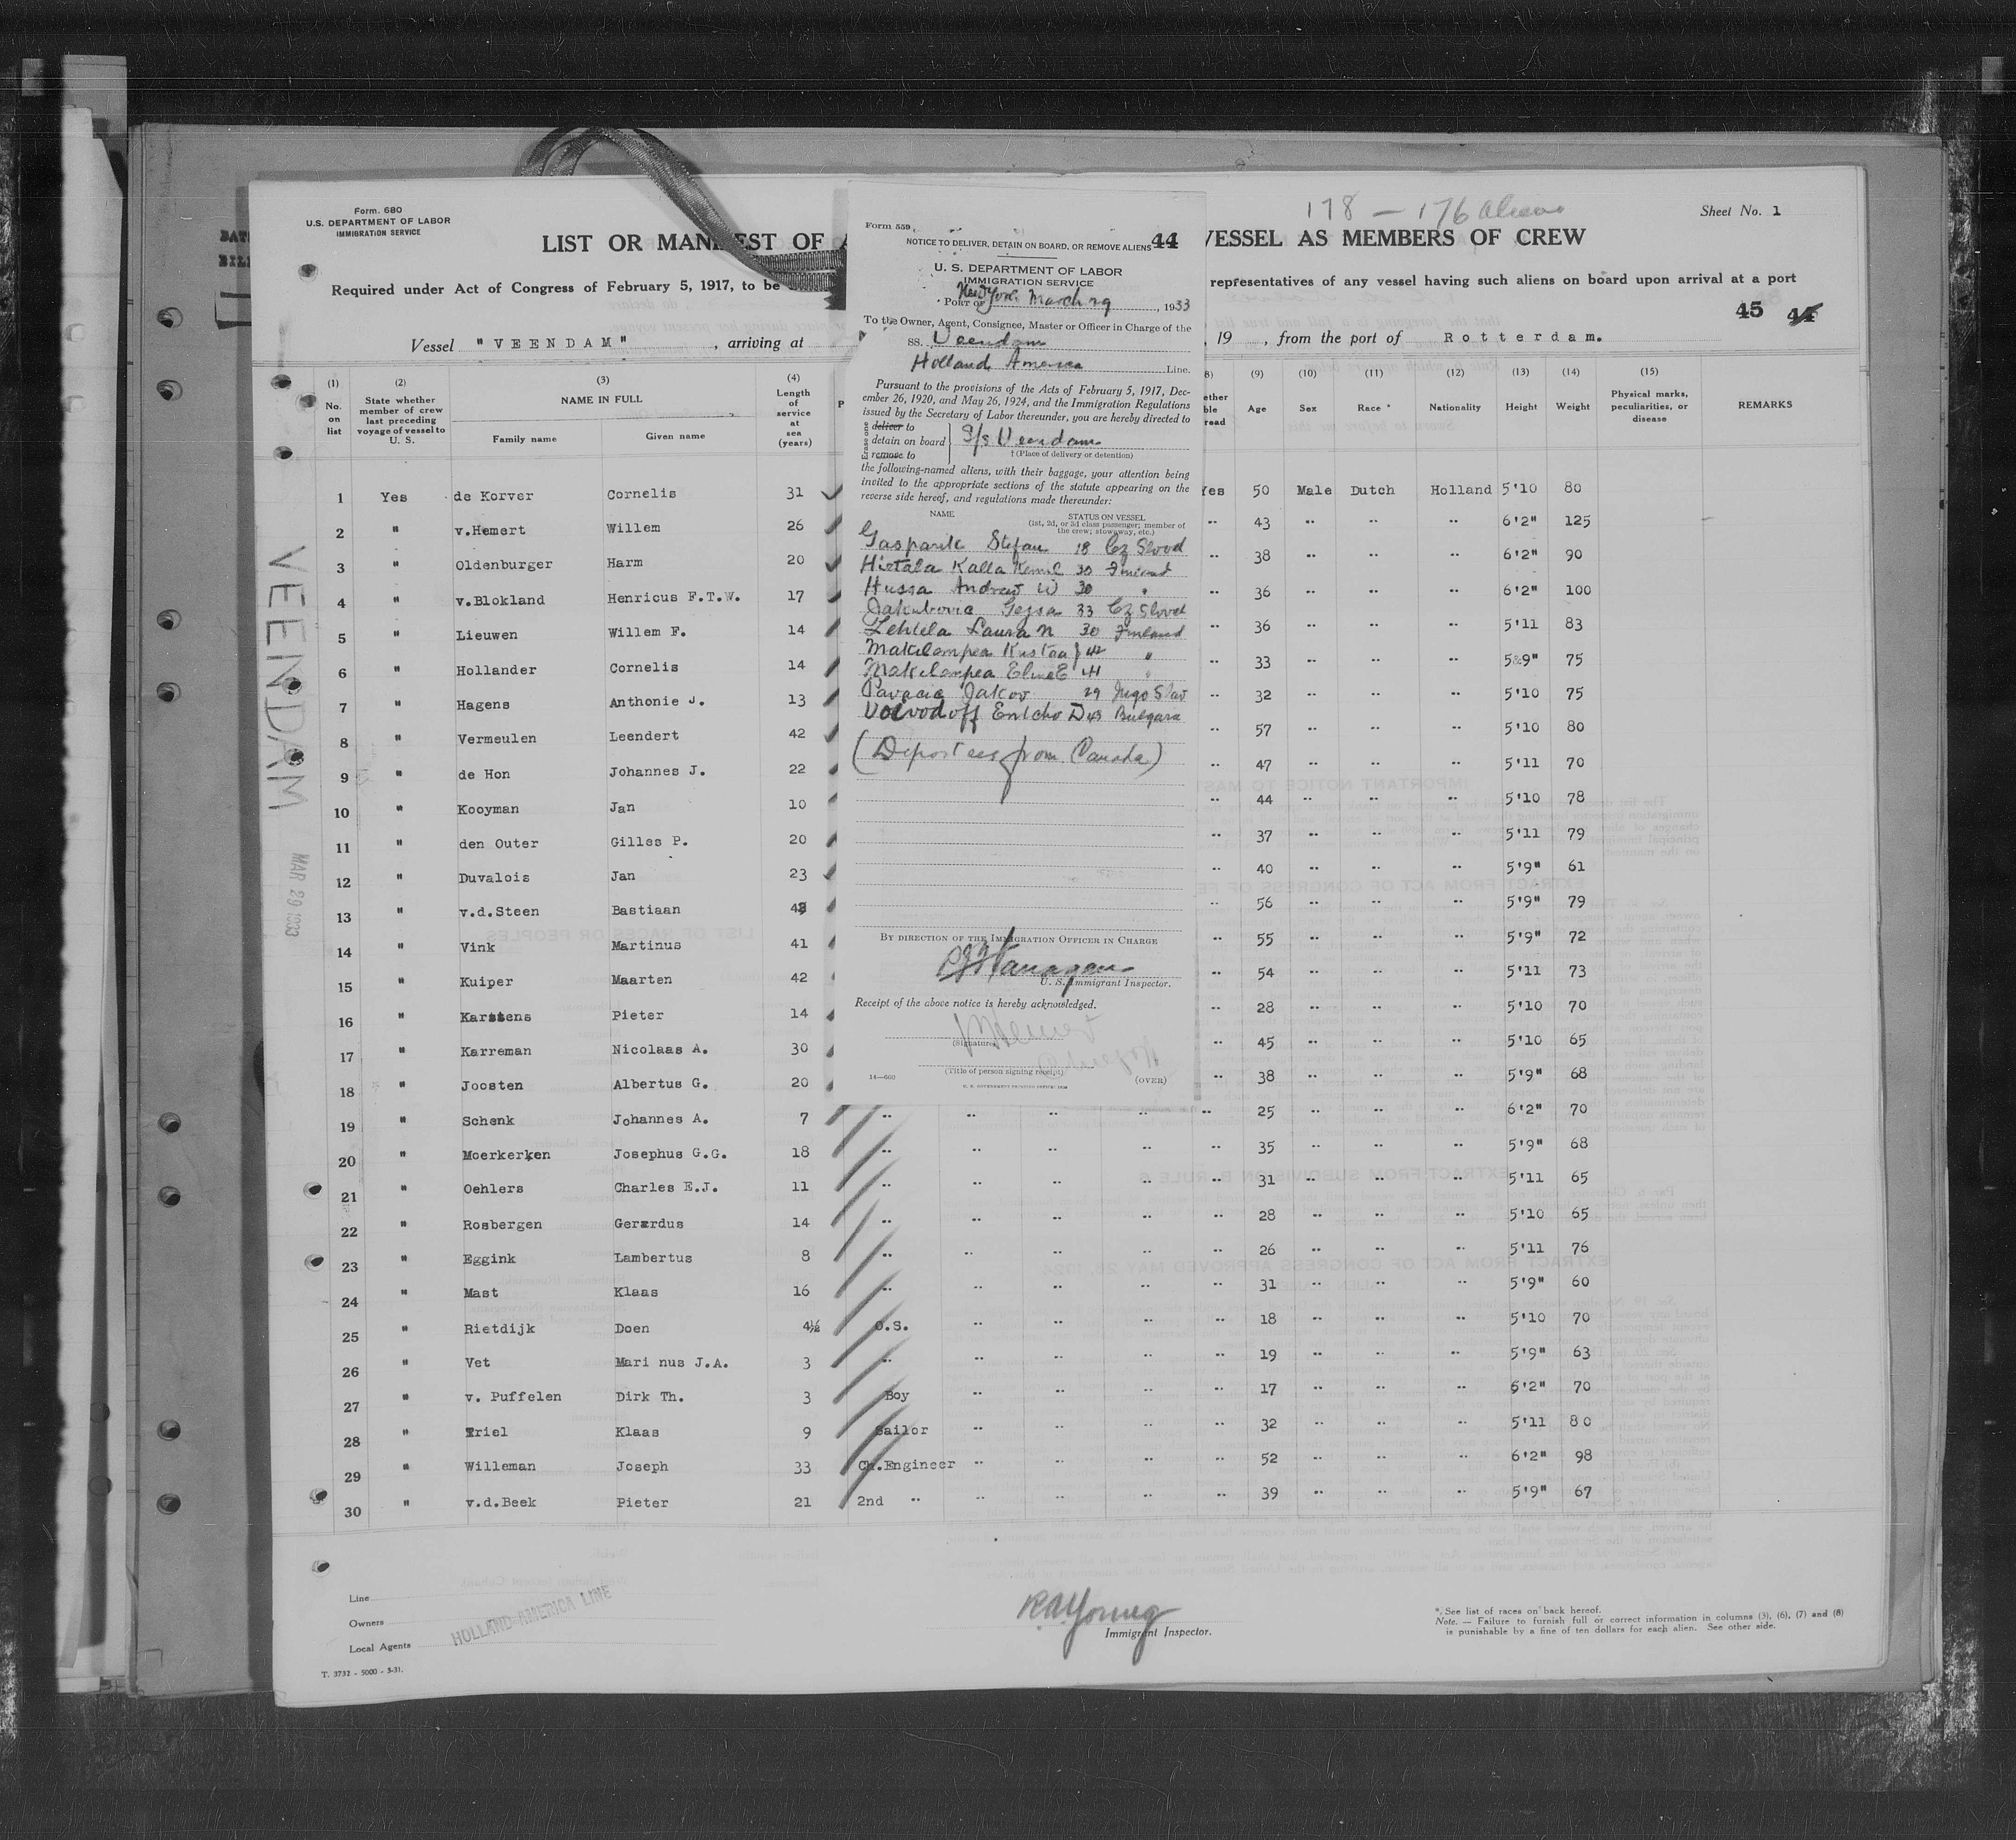 Form. 680
U.S. DEPARTMENT OF LABOR
IMMIGRATION SERVICE
178 — 176 aliens
Sheet No. 1
LIST OR MANIFEST OF A
VESSEL AS MEMBERS OF CREW
Required under Act of Congress of February 5, 1917, to be
representatives of any vessel having such aliens on board upon arrival at a port
45 44
Vessel "VEENDAM", arriving at
, 19 , from the port of Rotterdam.
(1) No. on list
(2) State whether member of crew last preceding voyage of vessel to U. S.
(3) NAME IN FULL
Family name Given name
(4) Length of service at sea (years)
(9) Age
(10) Sex
(11) Race *
(12) Nationality
(13) Height
(14) Weight
(15) Physical marks, peculiarities, or disease
REMARKS
1 Yes de Korver Cornelis 31 Yes 50 Male Dutch Holland 5'10 80
2 " v.Hemert Willem 26 " 43 " " " 6'2" 125
3 " Oldenburger Harm 20 " 38 " " " 6'2" 90
4 " v.Blokland Henricus F.T.W. 17 " 36 " " " 6'2" 100
5 " Lieuwen Willem F. 14 " 36 " " " 5'11 83
6 " Hollander Cornelis 14 " 33 " " " 5'9" 75
7 " Hagens Anthonie J. 13 " 32 " " " 5'10 75
8 " Vermeulen Leendert 42 " 57 " " " 5'10 80
9 " de Hon Johannes J. 22 " 47 " " " 5'11 70
10 " Kooyman Jan 10 " 44 " " " 5'10 78
11 " den Outer Gilles P. 20 " 37 " " " 5'11 79
12 " Duvalois Jan 23 " 40 " " " 5'9" 61
13 " v.d.Steen Bastiaan " 56 " " " 5'9" 79
14 " Vink Martinus 41 " 55 " " " 5'9" 72
15 " Kuiper Maarten 42 " 54 " " " 5'11 73
16 " Karstens Pieter 14 " 28 " " " 5'10 70
17 " Karreman Nicolaas A. 30 " 45 " " " 5'10 65
18 " Joosten Albertus G. 20 " 38 " " " 5'9" 68
19 " Schenk Johannes A. 7 " " " " " 25 " " " 6'2" 70
20 " Moerkerken Josephus G.G. 18 " " " " " 35 " " " 5'9" 68
21 " Oehlers Charles E.J. 11 " " " " " 31 " " " 5'11 65
22 " Rosbergen Gerardus 14 " " " " " 28 " " " 5'10 65
23 " Eggink Lambertus 8 " " " " " 26 " " " 5'11 76
24 " Mast Klaas 16 " " " " " 31 " " " 5'9" 60
25 " Rietdijk Doen 4½ O.S. " " " " 18 " " " 5'10 70
26 " Vet Marinus J.A. 3 " " " " " 19 " " " 5'9" 63
27 " v. Puffelen Dirk Th. 3 Boy " " " " 17 " " " 6'2" 70
28 " Triel Klaas 9 Sailor " " " " 32 " " " 5'11 80
29 " Willeman Joseph 33 Ch.Engineer " " " " 52 " " " 6'2" 98
30 " v.d.Beek Pieter 21 2nd " " " " " 39 " " " 5'9" 67
VEENDAM
MAR 29 1933
Form 559
NOTICE TO DELIVER, DETAIN ON BOARD, OR REMOVE ALIENS 44
U. S. DEPARTMENT OF LABOR
IMMIGRATION SERVICE
Port of New York March 29, 1933
To the Owner, Agent, Consignee, Master or Officer in Charge of the
SS. Veendam
Holland America Line.
Pursuant to the provisions of the Acts of February 5, 1917, Dec-
ember 26, 1920, and May 26, 1924, and the Immigration Regulations
issued by the Secretary of Labor thereunder, you are hereby directed to
Erase one
deliver to
detain on board S/s Veendam
remove to
† (Place of delivery or detention)
the following-named aliens, with their baggage, your attention being
invited to the appropriate sections of the statute appearing on the
reverse side hereof, and regulations made thereunder:
NAME STATUS ON VESSEL
(1st, 2d, or 3d class passenger; member of
the crew; stowaway, etc.)
Gasparik Stefan 18 Cz Slovd
Hietala Kalla Kemil 30 Finland
Hussa Andrew W 30 "
Jakubovic Gejsa 33 Cz Slovd
Lehtela Laura N 30 Finland
Makilampea Kustaa J 42 "
Makilampea Eline E 41 "
Pavacic Jakov 29 Jugo Slav
Voivodoff Entcho D 43 Bulgara
(Deportees from Canada)
BY DIRECTION OF THE IMMIGRATION OFFICER IN CHARGE
U. S. Immigrant Inspector.
Receipt of the above notice is hereby acknowledged.
(Signature)
(Title of person signing receipt)
14—660
U. S. GOVERNMENT PRINTING OFFICE
(OVER)
Line
Owners
Local Agents
HOLLAND-AMERICA LINE
T. 3732 - 5000 - 5-31.
R A Young
Immigrant Inspector.
*. See list of races on back hereof.
Note. — Failure to furnish full or correct information in columns (3), (6), (7) and (8)
is punishable by a fine of ten dollars for each alien. See other side.